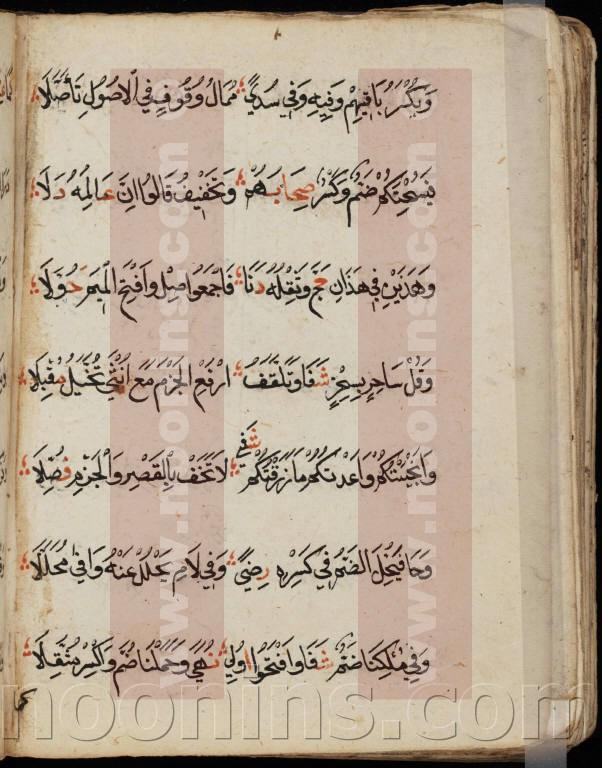 وَيَكْسِرُ بَاقِيهِمْ وَفِيهِ وَفِي سُدًى مُمَالُ وُقُوفٍ فِي الْاُصُولِ تَأَصَّلَا
فَيُسْحِتَكُمْ ضَمٌّ وَكَسْرٌ صِحَابُهُمْ وَتَخْفِيفُ قَالُوا اِنَّ عَالِمُهُ دَلَا
وَهَذَيْنِ فِي هَذَانِ حَجَّ وَثِقْلُهُ دَنَا فَاجْمَعُوا صِلْ وَافْتَحِ الْمِيمَ حُوَّلَا
وَقُلْ سَاحِرٍ بِسِحْرٍ شَفَا وَتَلَقَّفُ ارْفَعِ الْجَزْمَ مَعْ اُنْثَى تُخَيَّلُ مُقْبِلَا
وَاَنْجَيْتُكُمْ وَاعَدْتُكُمْ مَا رَزَقْتُكُمْ شفى لَا تَخَفْ بِالْقَصْرِ وَالْجَزْمِ فُصِّلَا
وَحَا فَيَحِلَّ الضَّمُّ فِي كَسْرِهِ رِضًى وَفِي لَامِ يَحْلُلْ عَنْهُ وَافَى مُحَلَّلَا
وَفِي مُلْكِنَا ضَمٌّ شَفَا وَافْتَحُوا اُولِي نُهًى وَحَمَلْنَا ضُمَّ وَاكْسِرْ مُثَقِّلَا
www.noonins.com
www.noonins.com
noonins.com